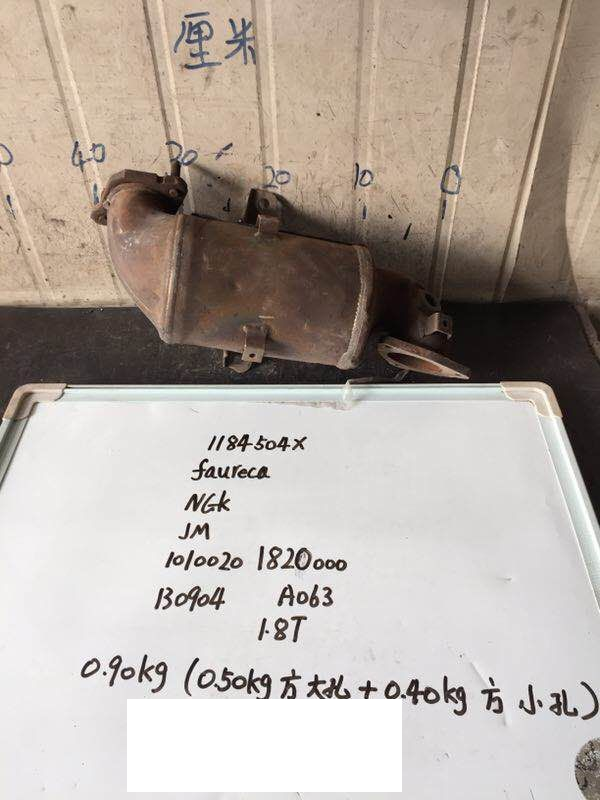 厘米
0 40 30 20 10 0
1184504X
faureca
NGK
JM
1010020 1820000
130904 A063
1.8T
0.90kg (0.50kg方大孔+0.40kg方小孔)